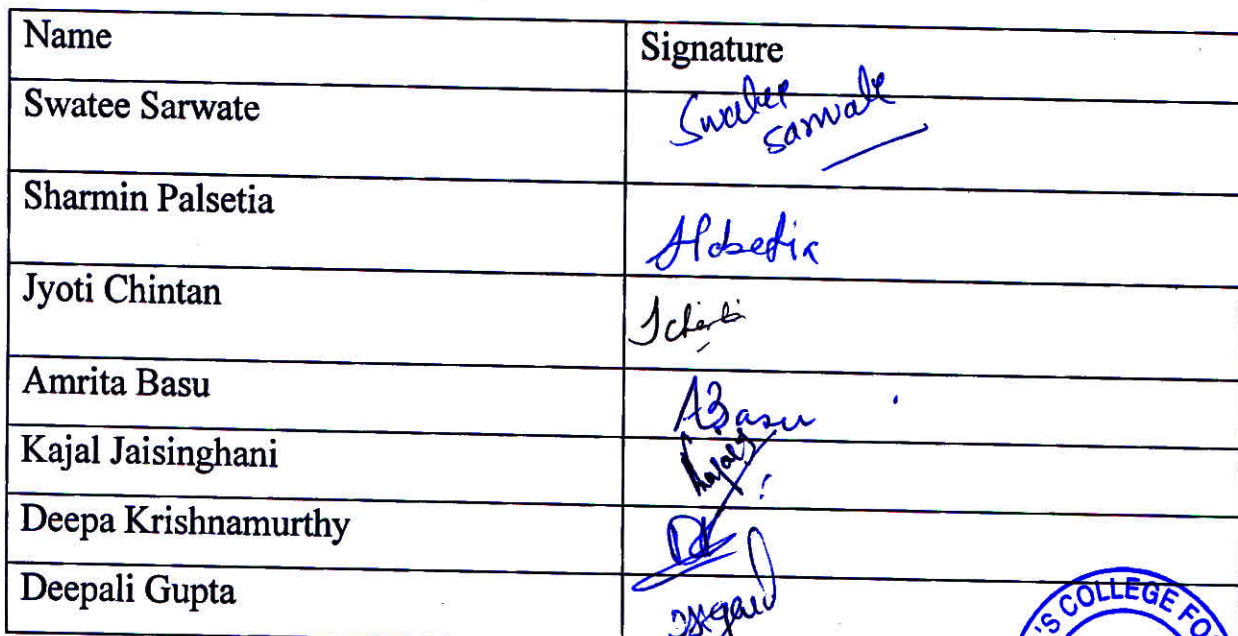 Name Signature
Swatee Sarwate Swatee
Sarwate
Sharmin Palsetia
Jyoti Chintan
Amrita Basu ABasu
Kajal Jaisinghani
Deepa Krishnamurthy DK
Deepali Gupta
'S COLLEGE FO